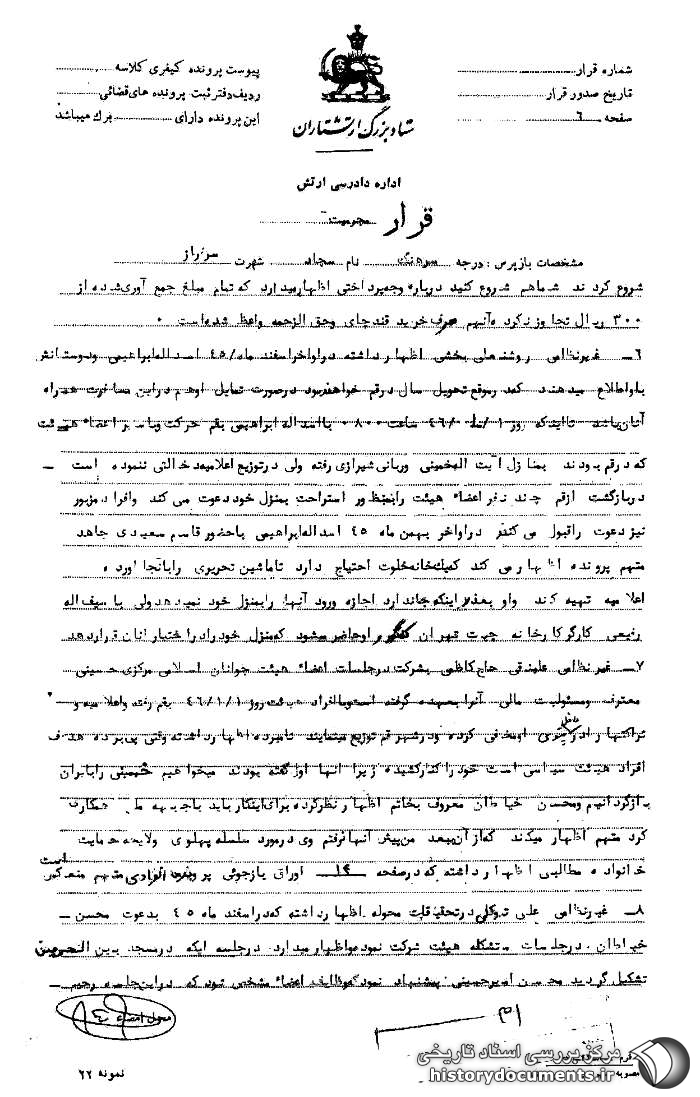 شماره قرار
تاریخ صدور قرار
صفحه ٦
پیوست پرونده کیفری کلاسه
ردیف دفتر ثبت پرونده های قضائی
این پرونده دارای برگ میباشد
ستاد بزرگ ارتشتاران
اداره دادرسی ارتش
قرار مجرمیت
مشخصات بازپرس : درجه سرهنگ نام سجاد شهرت سرافراز
شروع کردند شما هم شروع کنید درباره وجه پرداختی اظهار میدارد که تمام مبلغ جمع آوری شده از
٣٠٠ ریال تجاوز نکرده و آنهم صرف خرید قند چای وحق الزحمه واعظ شده است ٠
٦ـ غیرنظامی روشنعلی بخشی اظهار داشته در اواخر اسفند ماه/٤٥ اسداله ابراهیمی ودوستانش
باو اطلاع میدهند که موقع تحویل سال در قم خواهند بود در صورت تمایل او هم در این مسافرت همراه
آنان باشد تا اینکه روز ١/ ٤٦ ساعت ٠٨٠٠ با اسداله ابراهیمی بقم حرکت وبا سایر اعضاء هیئت
که در قم بودند بمنازل آیت اله خمینی وربانی شیرازی رفته ولی در توزیع اعلامیه دخالتی ننموده است ـ
در بازگشت از قم چند نفر اعضاء هیئت را بمنظور استراحت بمنزل خود دعوت می کند وافراد مزبور
نیز دعوت را قبول می کنند در اواخر بهمن ماه ٤٥ اسداله ابراهیمی با حضور قاسم سعیدی جاهد
متهم پرونده اظهار می کند که یک خانه خلوت احتیاج دارد تا ماشین تحریری را بآنجا آورده
اعلامیه تهیه کند واو بعذر اینکه جا ندارد اجازه ورود آنها را بمنزل خود نمیدهد ولی با سیف اله
رفیعی کارگر کارخانه چیت تهران او حاضر میشود که منزل خود را در اختیار آنان قرار دهد
٧ـ غیرنظامی علینقی حاج کاظمی بشرکت در جلسات اعضاء هیئت جوانان اسلامی مرکزی حسینی
معترف ومسئولیت مالی آنرا بعهده گرفته است وبا افراد هیئت روز ٤٦/١/١ بقم رفته واعلامیه و
تراکتها را در داخل او مخفی کرده ودر شهر قم توزیع مینمایند نامبرده اظهار داشته وقتی پی برده هدف
افراد هیئت سیاسی است خود را کنار کشیده زیرا آنها باو گفته بودند میخواهیم خمینی را بایران
بازگردانیم ومحسن خیاطان معروف بخاتم اظهار نظر کرده برای اینکار باید با جبهه ملی همکاری
کرد متهم اظهار میکند که از آن ببعد من پیش آنها نرفتم وی در مورد سلسله پهلوی ولایحه حمایت
خانواده مطالبی اظهار داشته که در صفحه اوراق بازجوئی پرونده متهم منعکس است
٨ـ غیرنظامی علی توکلی در تحقیقات محوله اظهار داشته که در اسفند ماه ٤٥ بدعوت محسن ـ
خیاطان در جلسات متشکله هیئت شرکت نموده و اظهار میدارد در جلسه ایکه در مسجد بین الحرمین
تشکیل گردید محسن امیرحسینی پیشنهاد نمود که وظایف اعضاء مشخص شود که در این جلسه رحیم ـ
محل امضاء
نمونه ٢٢
مرکز بررسی اسناد تاریخی
historydocuments.ir